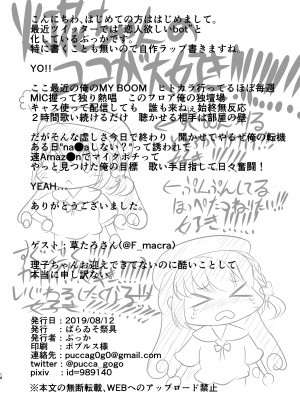 こんにちわ、はじめての方ははじめまして。
最近ツイッターでは"恋人欲しいbot"と
化しているぷっかです。
特に書くことも無いので自作ラップ書きますね。
YO!!
ココが大好き!!!
ここ最近の俺のMY BOOM ヒトカラ行ってるほぼ毎週
MIC握って独り熱唱 このフロア俺の独壇場
キャス使って配信しても 誰も来ねぇ始終無反応
2時間歌い続けるだけ 聴かせる相手は部屋の壁
だがそんな虚しさ今日で終わり 聞かせてやるぜ俺の転機
ある日"na●aしない?"って誘われて
速Amaz●nでマイクポチって
やっと見つけた俺の目標 歌い手目指して日々奮闘!
YEAH....
ありがとうございました。
ゲスト:草たろさん(@F_macra)
理子ちゃんお迎えできてないのに酷いことして
本当に申し訳ない。
発行日:2019/08/12
発行:ばらゐそ祭具
発行者:ぷっか
印刷:ポプルス様
連絡先:puccag0g0@gmail.com
twitter:@pucca_gogo
pixiv:id=989140
※本文の無断転載、WEBへのアップロード禁止